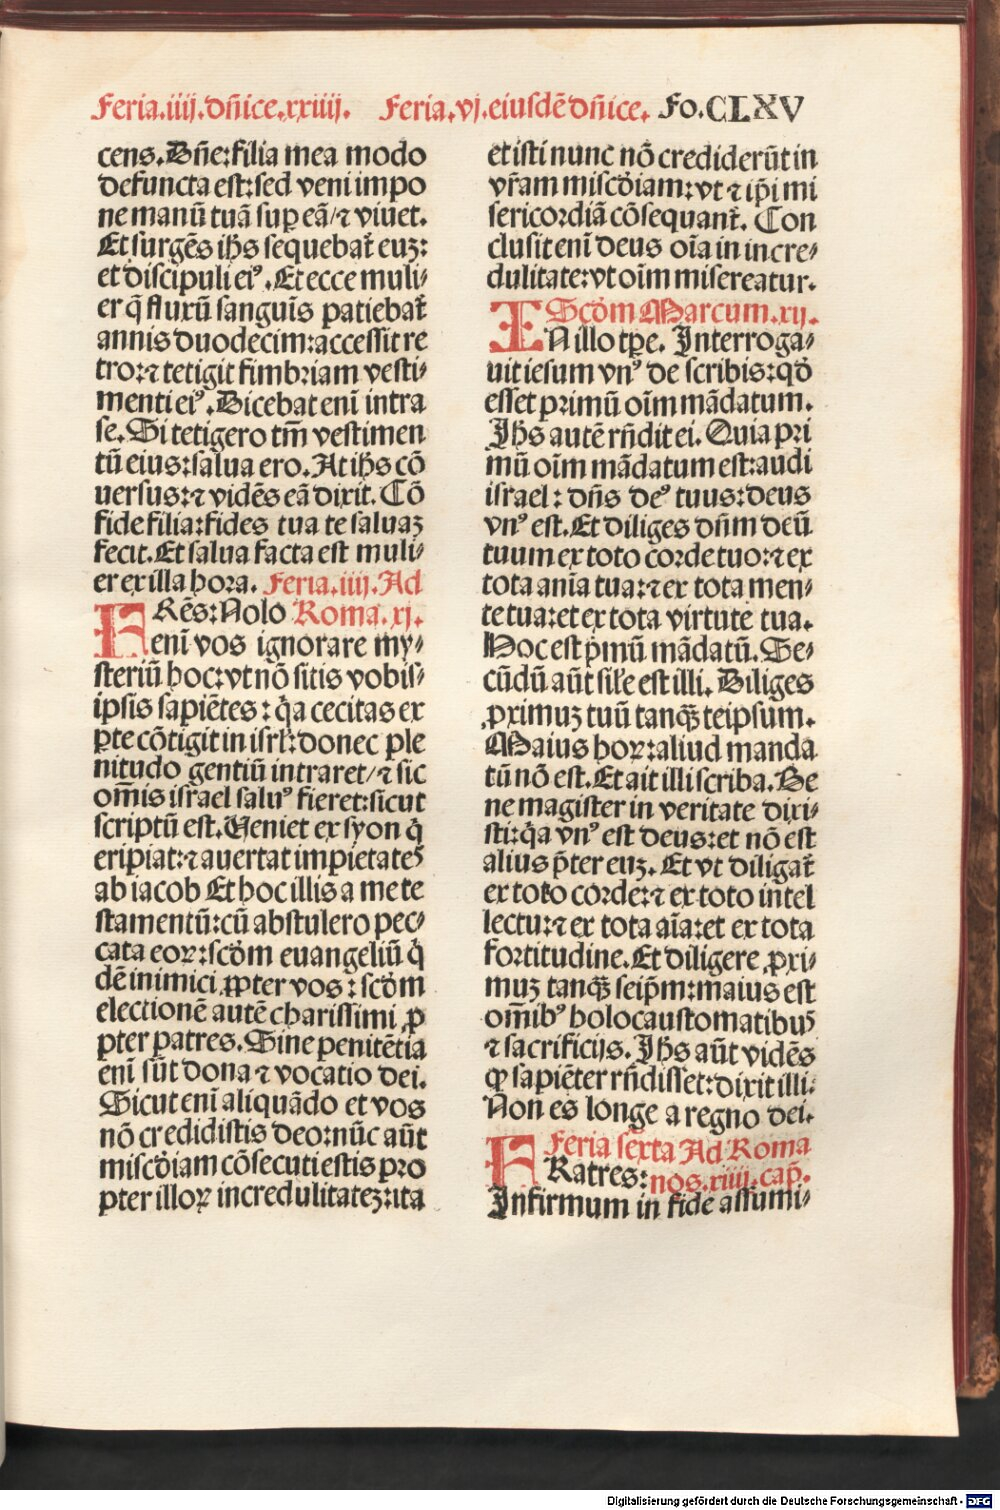 Feria.iiij.dn̄ice.xxiiij. Feria.vj.eiusdē dn̄ice. Fo.CLXV
cens. Dn̄e: filia mea modo
defuncta est: sed veni impo
ne manū tuā sup̲ eā/ ⁊ viuet.
Et surgēs ih̄s sequebat᷑ euꝫ:
et discipuli eiꝰ. Et ecce muli⸗
er q̄ fluxū sanguīs patiebat᷑
annis duodecim: accessit re
tro: ⁊ tetigit fimbriam vesti⸗
menti eiꝰ. Dicebat enī intra
se. Si tetigero tm̄ vestimen
tū eius: salua ero. At ih̄s cō
uersus: ⁊ vidēs eā dixit. Cō
fide filia: fides tua te saluaꝫ
fecit. Et salua facta est muli⸗
er ex illa hora. Feria.iiij. Ad
FRēs: Nolo Roma.xj.
enī vos ignorare my⸗
steriū hoc: vt nō sitis vobis⸗
ipsis sapiētes: q̄a cecitas ex
ꝑte cōtigit in isrl̄: donec ple
nitudo gentiū intraret/ ⁊ sic
om̄is israel saluꝰ fieret: sicut
scriptū est. Veniet ex syon q̄
eripiat: ⁊ auertat impietates
ab iacob Et hoc illis a me te
stamentū: cū abstulero pec⸗
cata eoꝝ: scd̄m euangeliū q̄
dē inimici ꝓpter vos: scd̄m
electionē autē charissimi ꝓ
pter patres. Sine penitētia
enī sūt dona ⁊ vocatio dei.
Sicut enī aliquādo et vos
nō credidistis deo: nūc aūt
miscd̄iam cōsecuti estis pro
pter illoꝝ incredulitateꝫ: ita
et isti nunc nō crediderūt in
vr̄am miscd̄iam: vt ⁊ ip̄i mi
sericordiā cōsequant᷑. Con
clusit enī deus oīa in incre⸗
dulitate: vt oīm misereatur.
Scd̄m Marcum.xij.
IN illo tp̄e. Interroga⸗
uit iesum vnꝰ de scribis: qd̄
esset primū oīm mādatum.
Ih̄s autē rn̄dit ei. Quia pri
mū oīm mādatum est: audi
israel: dn̄s deꝰ tuus: deus
vnꝰ est. Et diliges dn̄m deū
tuum ex toto corde tuo: ⁊ ex
tota anīa tua: ⁊ ex tota men⸗
te tua: et ex tota virtute tua.
Hoc est p̄mū mādatū. Se⸗
cūdū aūt sil̄e est illi. Diliges
ꝓximuꝫ tuū tanqꝫ̄ teipsum.
Maius hoꝝ: aliud manda
tū nō est. Et ait illi scriba. Be
ne magister in veritate dixi⸗
sti: q̄a vnꝰ est deus: et nō est
alius p̄ter euꝫ. Et vt diligat᷑
ex toto corde: ⁊ ex toto intel
lectu: ⁊ ex tota aīa: et ex tota
fortitudine. Et diligere ꝓxi⸗
muꝫ tanqꝫ̄ seip̄m: maius est
om̄ibꝰ holocaustomatibus
⁊ sacrificijs. Ih̄s aūt vidēs
ꝙ sapiēter rn̄disset: dixit illi:
Non es longe a regno dei.
Feria sexta Ad Roma
FRatres: nos.xiiij.cap̄.
Infirmum in fide assumi⸗
Digitalisierung gefördert durch die Deutsche Forschungsgemeinschaft - DFG